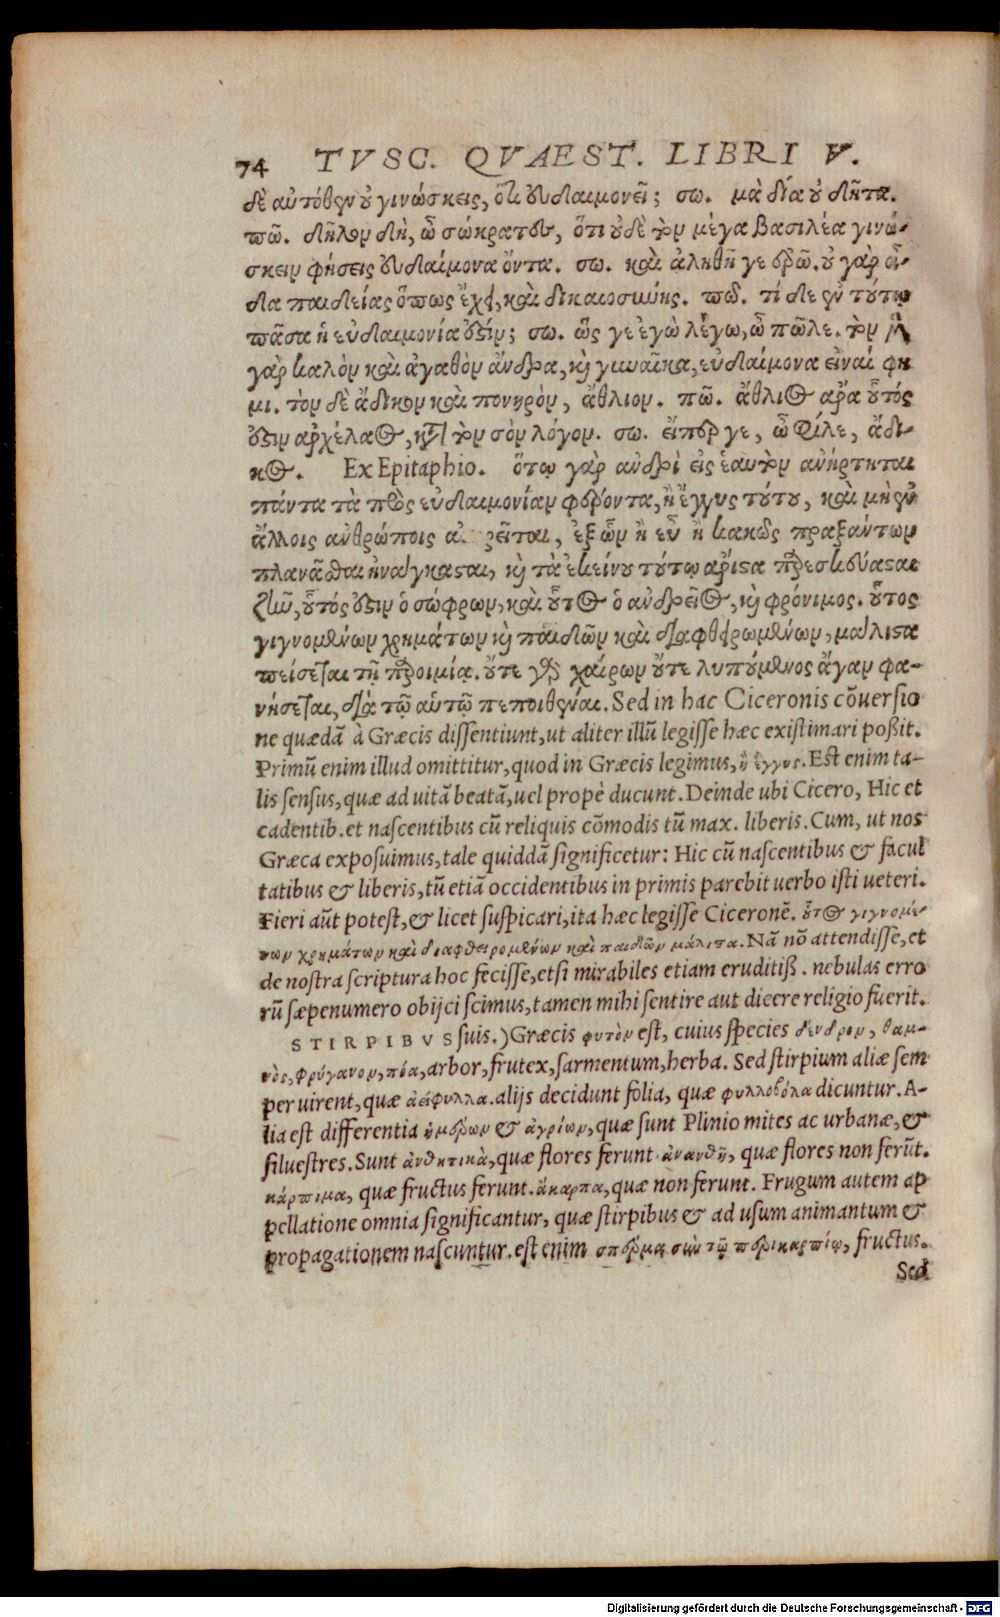 74 TVSC. QVAEST. LIBRI V.
δὲ αὐτόθεν οὐ γινώσκεις, ὅτι εὐδαιμονεῖ; σω. μὰ δία οὐ δῆτα.
πῶ. δῆλον δὴ, ὦ σώκρατες, ὅτι οὐδὲ τὸν μέγα βασιλέα γινώ-
σκειν φήσεις εὐδαίμονα ὄντα. σω. καὶ ἀληθῆ γε ἐρῶ. οὐ γὰρ οἶ-
δα παιδείας ὅπως ἔχει, καὶ δικαιοσύνης. πω. τί δε ἐν τούτῳ
πᾶσα ἡ εὐδαιμονία ἐστίν; σω. ὥς γε ἐγὼ λέγω, ὦ πῶλε. τὸν μὲν
γὰρ καλὸν καὶ ἀγαθὸν ἄνδρα, καὶ γυναῖκα, εὐδαίμονα εἶναί φη
μι. τὸν δὲ ἄδικον καὶ πονηρὸν, ἄθλιον. πῶ. ἄθλιος ἄρα οὗτός
ἐστιν ἀρχέλαος, κατὰ τὸν σὸν λόγον. σω. εἴπερ γε, ὦ φίλε, ἄδι-
κος. Ex Epitaphio. ὅτῳ γὰρ ἀνδρὶ εἰς ἑαυτὸν ἀνήρτηται
πάντα τὰ πρὸς εὐδαιμονίαν φέροντα, ἢ ἔγγυς τούτου, καὶ μὴ ἐν
ἄλλοις ἀνθρώποις αἰωρεῖται, ἐξ ὧν ἢ εὖ ἢ κακῶς πραξάντων
πλανᾶσθαι ἠνάγκασται, καὶ τὰ ἐκείνου τούτῳ ἄριστα παρεσκεύασται
ζῆν, οὗτός ἐστιν ὁ σώφρων, καὶ οὗτος ὁ ἀνδρεῖος, καὶ φρόνιμος. οὗτος
γιγνομένων χρημάτων καὶ παιδῶν καὶ διαφθειρωμένων, μάλιστα
πείσεται τῇ παροιμίᾳ. οὔτε γὰρ χαίρων οὔτε λυπούμενος ἄγαν φα-
νήσεται, διὰ τῷ αὑτῷ πεποιθέναι. Sed in hac Ciceronis cōuersio
ne quædā à Græcis dissentiunt, ut aliter illū legisse hæc existimari poßit.
Primū enim illud omittitur, quod in Græcis legimus, ἢ ἔγγυς. Est enim ta-
lis sensus, quæ ad uitā beatā, uel propè ducunt. Deinde ubi Cicero, Hic et
cadentib. et nascentibus cū reliquis cōmodis tū max. liberis. Cum, ut nos
Græca exposuimus, tale quiddā significetur: Hic cū nascentibus & facul
tatibus & liberis, tū etiā occidentibus in primis parebit uerbo isti ueteri.
Fieri aūt potest, & licet suspicari, ita hæc legisse Ciceronē. οὗτος γιγνομέ-
νων χρημάτων καὶ διαφθειρομένων καὶ παιδῶν μάλιστα. Nā nō attendisse, et
de nostra scriptura hoc fecisse, etsi mirabiles etiam eruditiß. nebulas erro
rū sæpenumero obijci scimus, tamen mihi sentire aut dicere religio fuerit.
STIRPIBVS suis.) Græcis φυτὸν est, cuius species δένδρον, θαμ-
νὸς, φρύγανον, πόα, arbor, frutex, sarmentum, herba. Sed stirpium aliæ sem
per uirent, quæ ἀείφυλλα. alijs decidunt folia, quæ φυλλοβόλα dicuntur. A-
lia est differentia ἡμέρων & ἀγρίων, quæ sunt Plinio mites ac urbanæ, &
siluestres. Sunt ἀνθητικὰ, quæ flores ferunt. ἀνανθῆ, quæ flores non ferūt.
κάρπιμα, quæ fructus ferunt. ἄκαρπα, quæ non ferunt. Frugum autem ap
pellatione omnia significantur, quæ stirpibus & ad usum animantum &
propagationem nascuntur. est enim σπέρμα σὺν τῷ περικαρπίῳ, fructus.
Sed
Digitalisierung gefördert durch die Deutsche Forschungsgemeinschaft - DFG